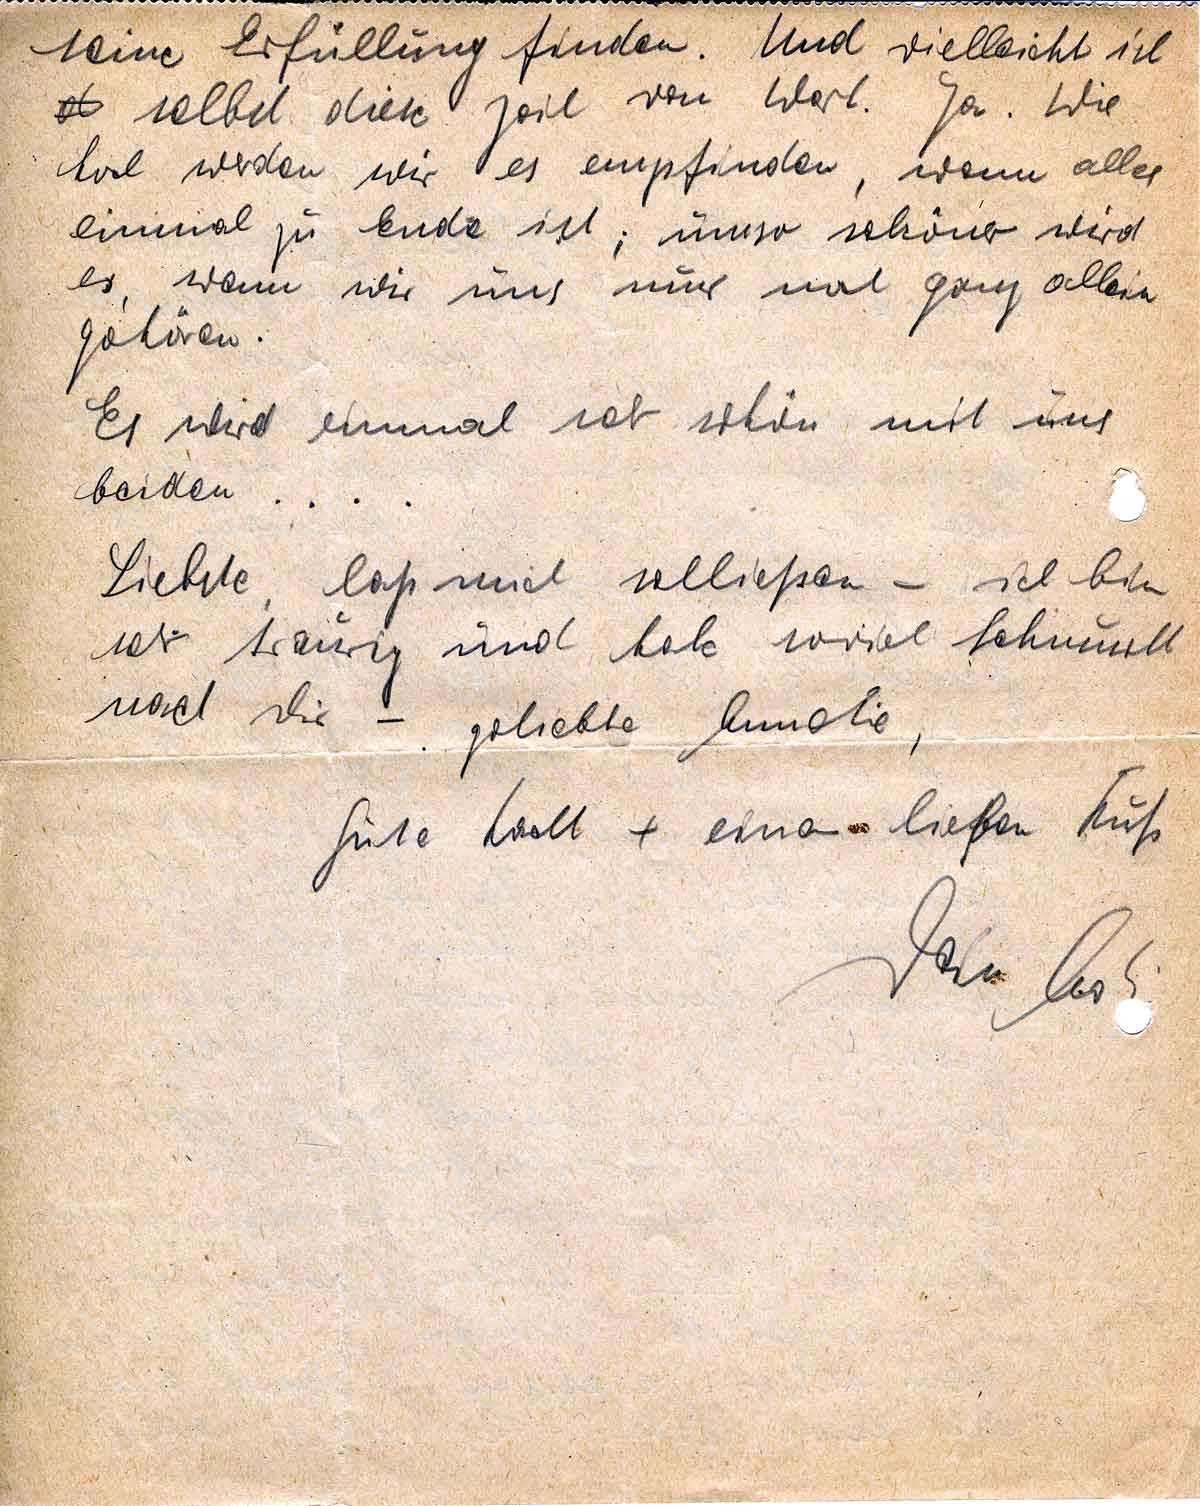 seine Erfüllung finden. Und vielleicht ist
selbst diese Zeit von Wert. Ja. Wie
werden wir es empfinden, wenn alles
einmal zu Ende ist; umso schöner wird
es, wenn wir uns nur mal ganz allein
gehören.
Es wird einmal sehr schön mit uns
beiden . . . .
Liebste, laß mich schließen – ich bin
sehr traurig und habe soviel Sehnsucht
nach Dir – geliebte Annelie,
Gute Nacht + einen lieben Kuß
Dein